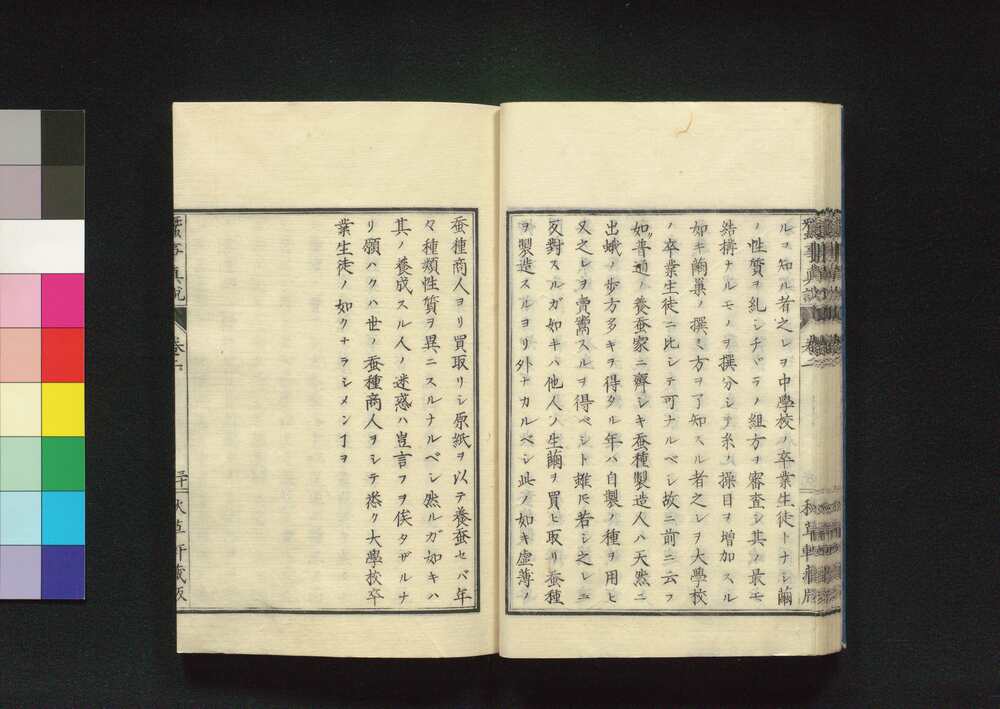 ルヲ知ル者之レヲ中學校ノ卒業生徒トナシ繭
ノ性質ヲ糺シチヾラノ組方ヲ審査シ其ノ最モ
結構ナルモノヲ撰分シテ糸ノ操目ヲ増加スル
如キ繭巣ノ撰ミ方ヲ了知スル者之レヲ大學校
ノ卒業生徒ニ比シテ可ナルベシ故ニ前ニ云フ
如ク普通ノ養蚕家ニ齊シキ蚕種製造人ハ天然ニ
出蛾ノ歩方多キヲ得タル年ハ自製ノ種ヲ用ヒ
又之レヲ賣鬻スルヲ得ベシト雖𪜈若シ之レニ
反對スルガ如キハ他人ノ生繭ヲ買ヒ取リ蚕種
ヲ製造スルヨリ外ナカルベシ此ノ如キ虚薄ノ
蚕種商人ヨリ買取リシ原紙ヲ以テ養蚕セバ年
々種類性質ヲ異ニスルナルベシ然ルガ如キハ
其ノ養成スル人ノ迷惑ハ豈言フヲ俟タザルナ
リ願ハクハ世ノ蚕種商人ヲシテ悉ク大學校卒
業生徒ノ如クナラシメンヿヲ
蚕事真説
卷二
三十
秋草軒蔵版